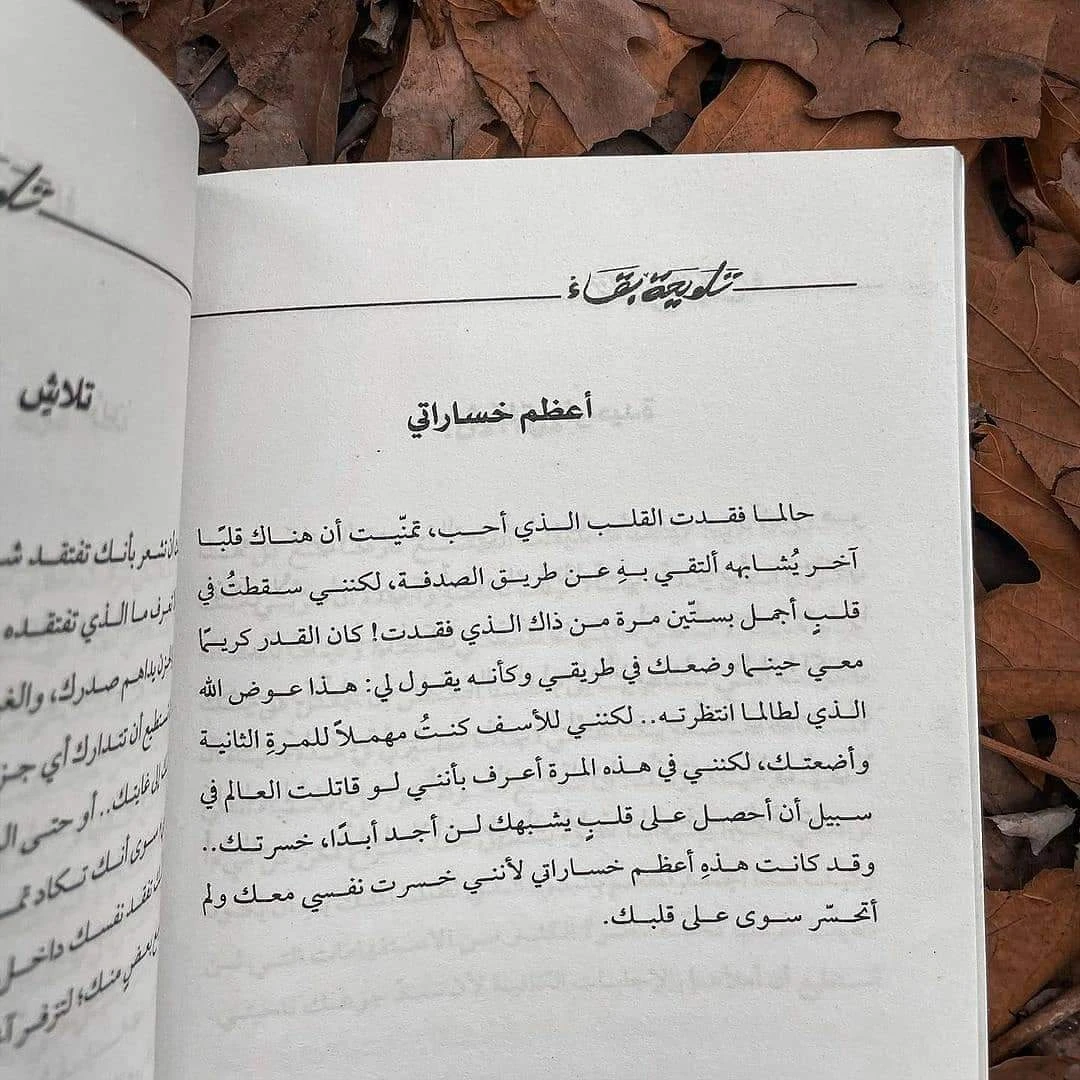 تلويحة بقاء
أعظم خساراتي
حالما فقدت القلب الذي أحب، تمنّيت أن هناك قلبًا
آخر يُشابهه ألتقي بهِ عن طريق الصدفة، لكنني سقطتُ في
قلبٍ أجمل بستّين مرة من ذاك الذي فقدت! كان القدر كريمًا
معي حينما وضعك في طريقي وكأنه يقول لي: هذا عوض الله
الذي لطالما انتظرته.. لكنني للأسف كنتُ مهملاً للمرةِ الثانية
وأضعتك، لكنني في هذه المرة أعرف بأنني لو قاتلت العالم في
سبيل أن أحصل على قلبٍ يشبهك لن أجد أبدًا، خسرتك..
وقد كانت هذهِ أعظم خساراتي لأنني خسرت نفسي معك ولم
أتحسّر سوى على قلبك.
تلاشٍ
أن تشعر بأنك تفتقد
ما الذي تفتقده
يداهم صدرك،
أن تتدارك أي
إلى غايتك.. أو حتى
سوى أنك تكاد
تفقد نفسك داخل
منك؛ لتزفر